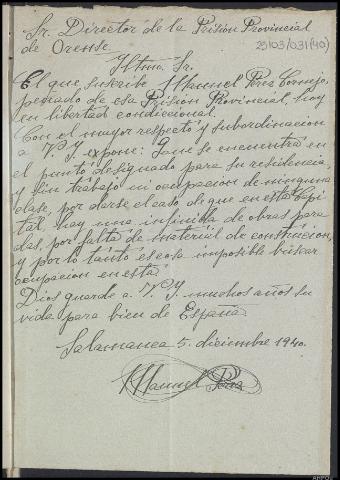 Sr. Director de la Prisión Provincial
de Orense
29/03/031(40)
Iltmo. Sr.
El que suscribe Manuel Perez Cornejo,
penado de esa Prisión Provincial, hoy
en libertad condicional.
Con el mayor respeto y subordinacion
a V. I. expone: Que se encuentra en
el punto designado para su residencia,
y sin trabajo ni ocupacion de ninguna
clase, por darse el caso de que en esta Capi-
tal, hay una infinidad de obras para-
das, por falta de material de construcion,
y por lo tanto es cosa imposible buscar
ocupacion en esta.
Dios guarde a V. I. muchos años su
vida para bien de España
Salamanca 5. diciembre 1940.
Manuel Perez